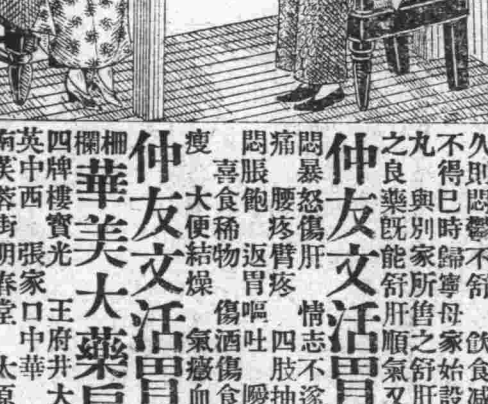 久則悶鬱不舒　飲食減
不得已時歸寧母家始設
丸　與別家所售之舒肝
之良藥既能舒肝順氣又
仲友文活胃
悶暴怒傷肝　情志不遂
痛　腰疼臂疼　四肢抽
悶脹飽　返胃嘔吐
喜食稀物　傷酒傷食
瘦　大便結燥　氣癥血
仲友文活胃
柵欄
華美大藥房
四牌樓寶光　王府井大
英中西　張家口中華
南芙蓉街明春堂　太原